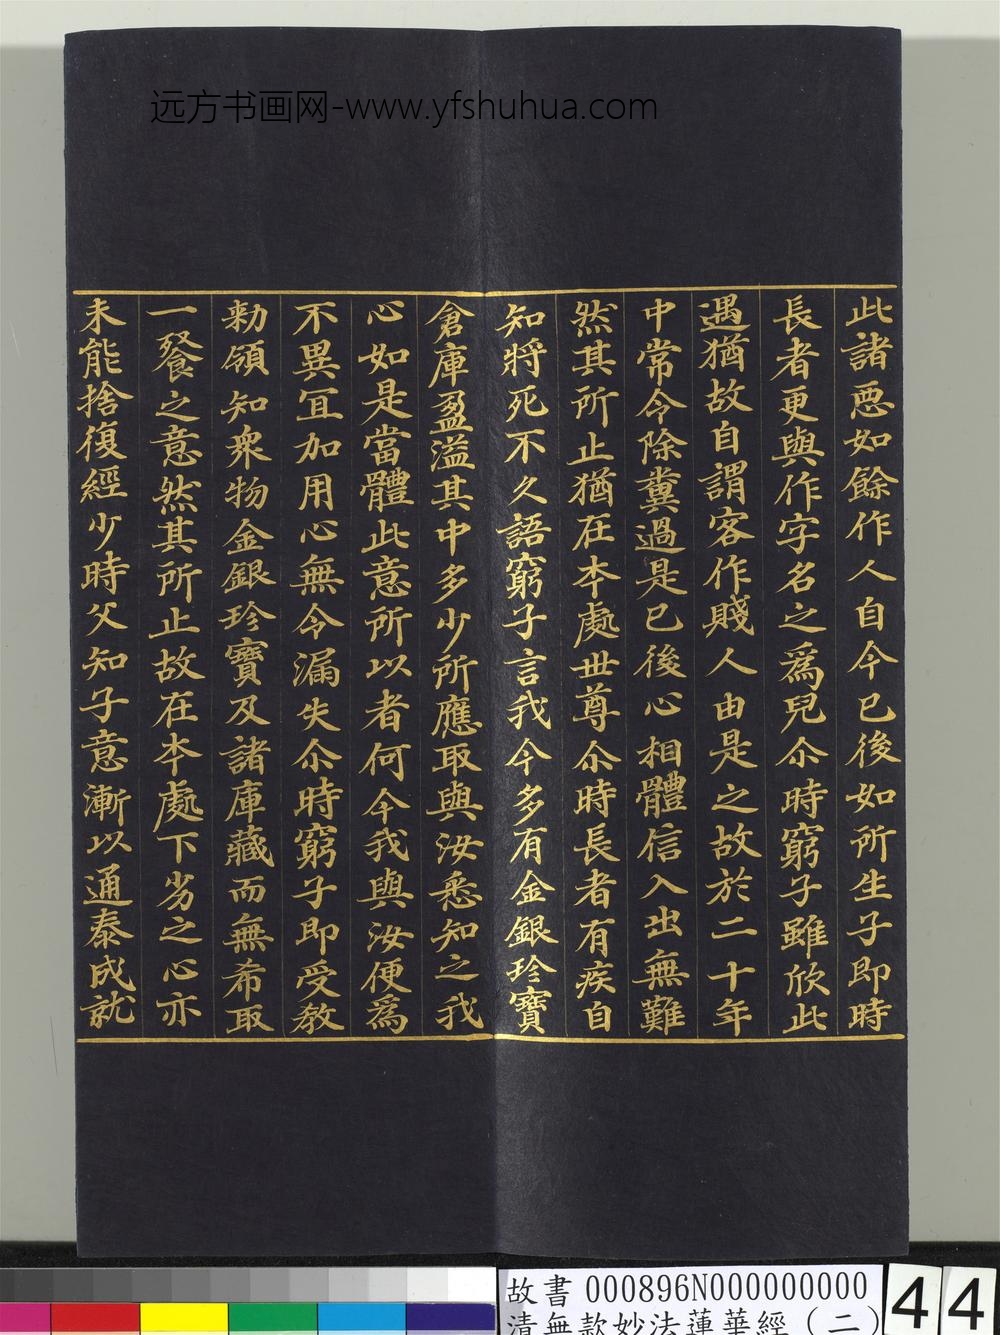 远方书画网-www.yfshuhua.com
此諸惡如餘作人自今已後如所生子即時
長者更與作字名之爲兒尒時窮子雖欣此
遇猶故自謂客作賤人由是之故於二十年
中常令除糞過是已後心相體信入出無難
然其所止猶在本處世尊尒時長者有疾自
知將死不久語窮子言我今多有金銀珍寶
倉庫盈溢其中多少所應取與汝悉知之我
心如是當體此意所以者何今我與汝便爲
不異冝加用心無令漏失尒時窮子即受教
勑領知衆物金銀珍寶及諸庫藏而無希取
一飡之意然其所止故在本處下劣之心亦
未能捨復經少時父知子意漸以通泰成就
故書 000896N000000000
清無款妙法蓮華經（二）
44